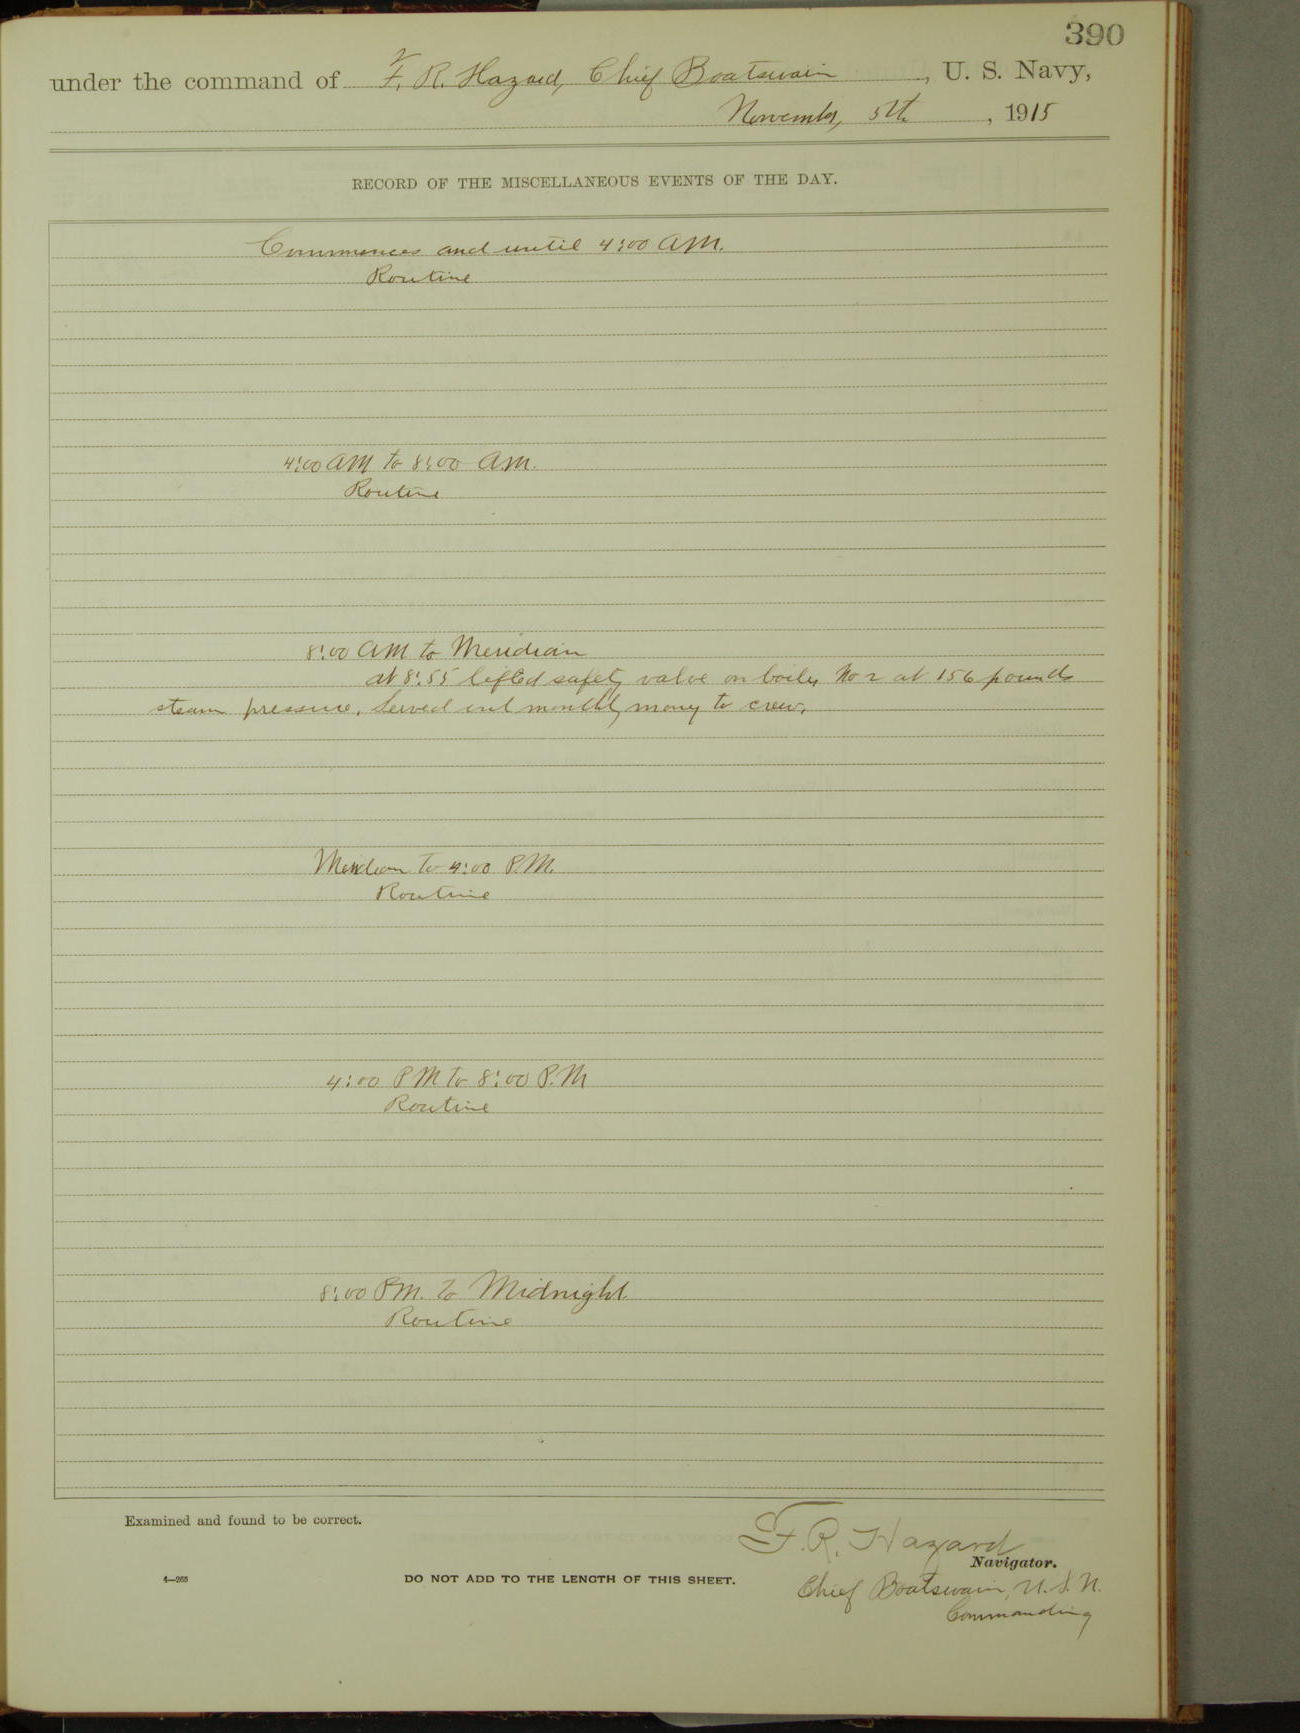 390
under the command of F. R. Hazard, Chief Boatswain, U. S. Navy,
November, 5th, 1915
RECORD OF THE MISCELLANEOUS EVENTS OF THE DAY.
Commences and until 4:00 AM.
Routine
4:00 AM to 8:00 AM.
Routine
8:00 AM to Meridian
at 8:55 lifted safety valve on boiler No 2 at 156 pounds
steam pressure. Served out monthly money to crew.
Meridian to 4:00 P.M.
Routine
4:00 PM to 8:00 P.M
Routine
8:00 PM. to Midnight
Routine
Examined and found to be correct.
F. R. Hazard
Navigator.
4—265
DO NOT ADD TO THE LENGTH OF THIS SHEET.
Chief Boatswain, U. S. N.
Commanding